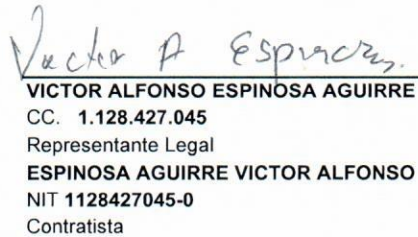 Victor A Espinoza.
VICTOR ALFONSO ESPINOSA AGUIRRE
CC. 1.128.427.045
Representante Legal
ESPINOSA AGUIRRE VICTOR ALFONSO
NIT 1128427045-0
Contratista